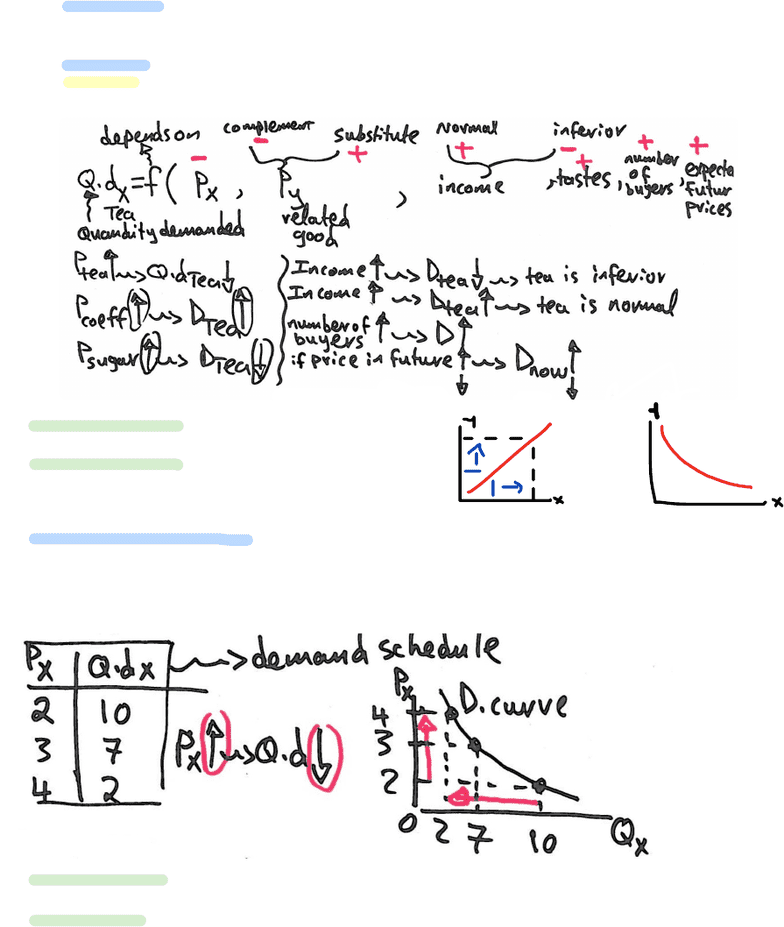 depends on complement substitute normal inferior
- - + + - + + +
Q.dx = f( Px, Py, income, tastes, number of buyers, expecte futur prices
Tea related good
Quandity demanded
Ptea↑ → Q.dTea↓
Pcoeff↑ → DTea↑
Psugar↑ → DTea↓
Income ↑ → Dtea↓ → tea is inferior
Income ↑ → Dtea↑ → tea is normal
number of buyers ↑ → D↑
if price in future ↑ → Dnow ↑
↓ ↓
x
x
Px Q.dx → demand schedule
2 10
3 7
4 2
Px ↑ → Q.d ↓
Px
D.curve
4
3
2
0 2 7 10 Qx